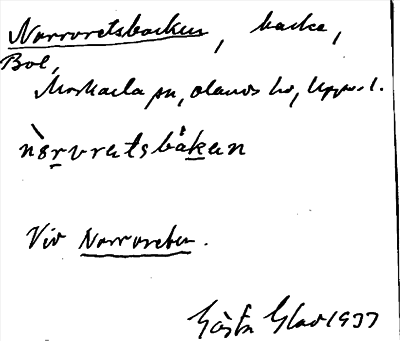 Norrvretsbacken, backe,
Bol,
Morkarla sn, Olands hd, Upps. l.
nòrvretsbåkan
Vid Norrvreten.
Gösta Glad 1937